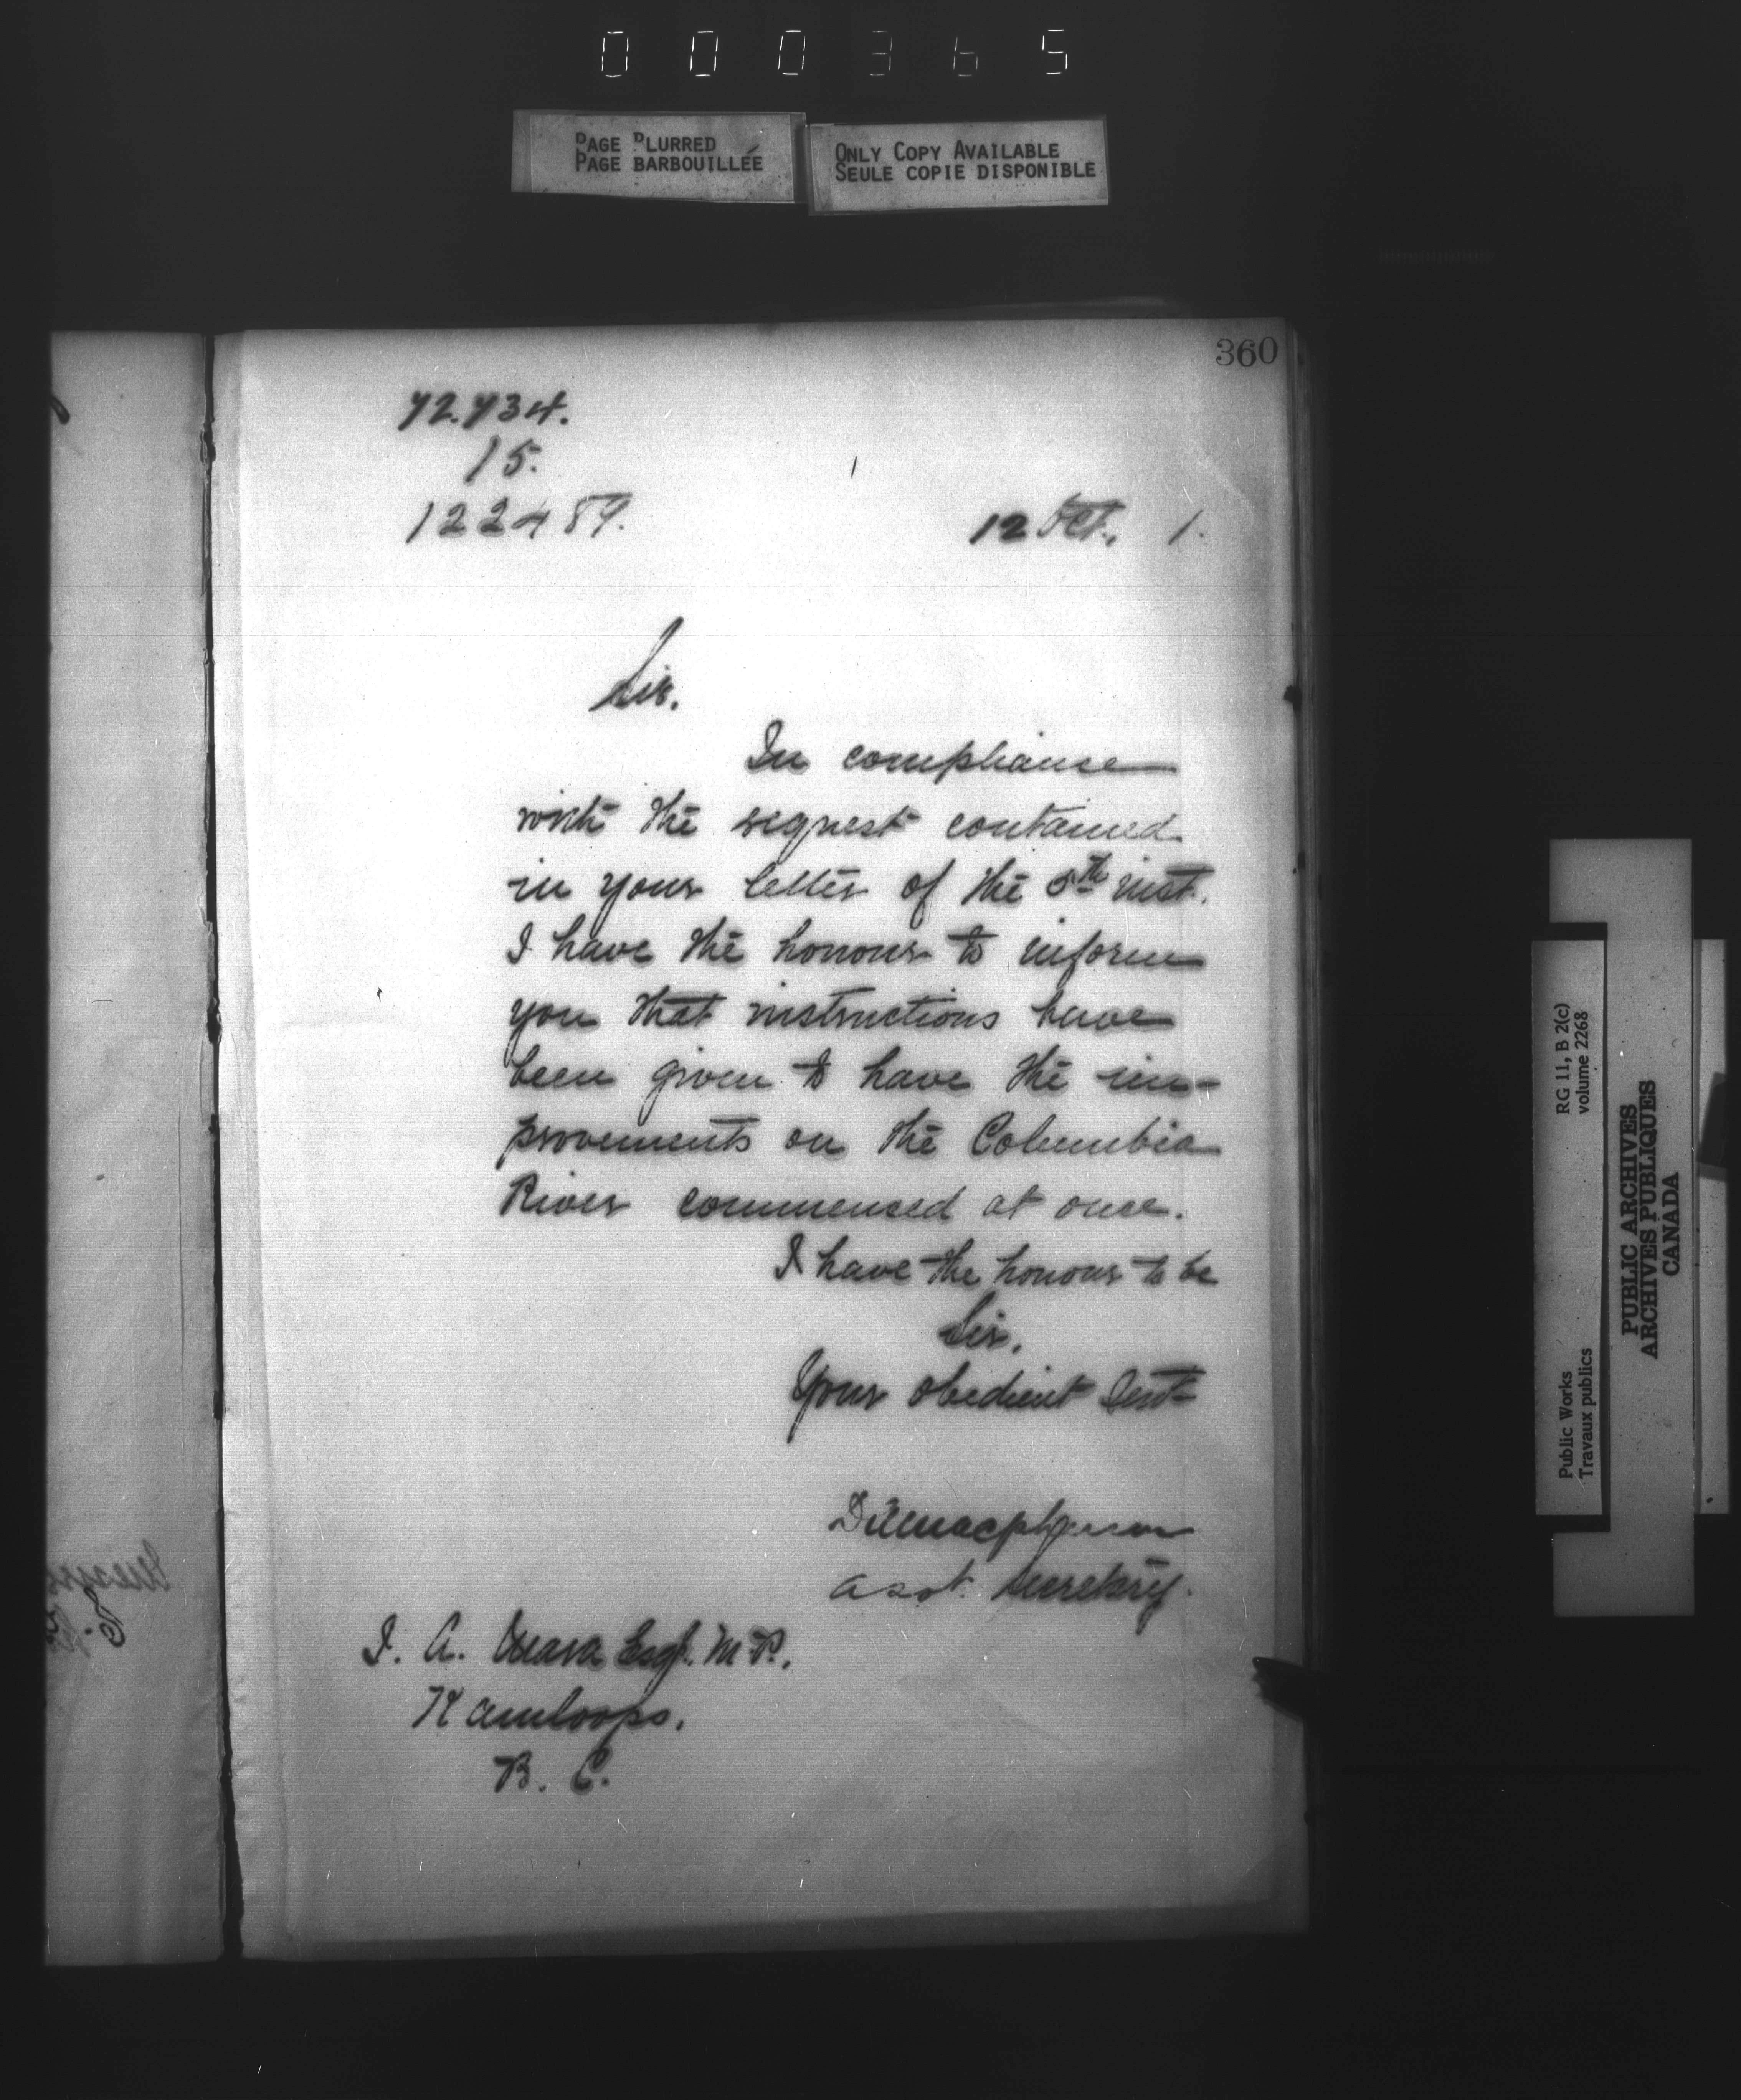 000365
PAGE BLURRED
PAGE BARBOUILLÉE
ONLY COPY AVAILABLE
SEULE COPIE DISPONIBLE
360
72.734.
15.
122489.
12 Oct., 1.
Sir.
In compliance
with the request contained
in your letter of the 5th inst.
I have the honour to inform
you that instructions have
been given to have the im-
provements on the Columbia
River commenced at once.
I have the honour to be
Sir,
Your obedient Servt
Macpherson
asst. Secretary.
J. A. Mara Esqr. M.P.
Kamloops.
B. C.
RG 11, B 2(c)
volume 2268
Public Works
Travaux publics
PUBLIC ARCHIVES
ARCHIVES PUBLIQUES
CANADA